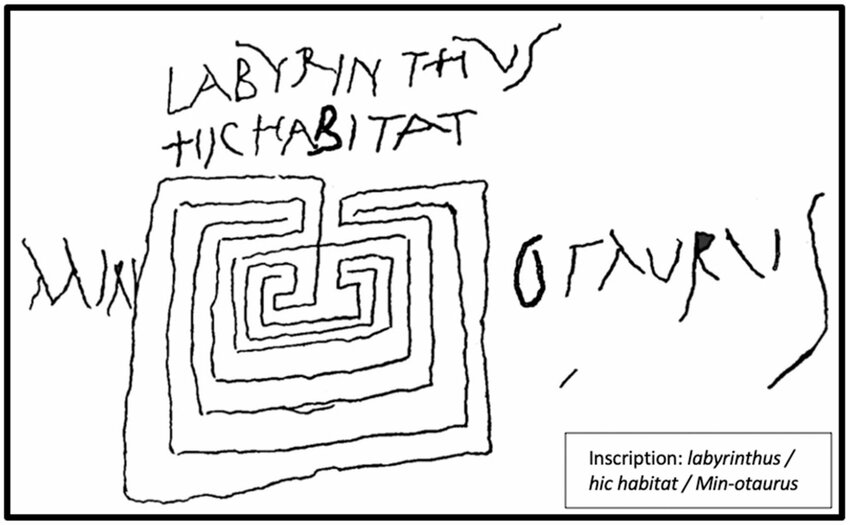 LABYRINTHUS
HIC HABITAT
MIN OTAURUS
Inscription: labyrinthus /
hic habitat / Min-otaurus